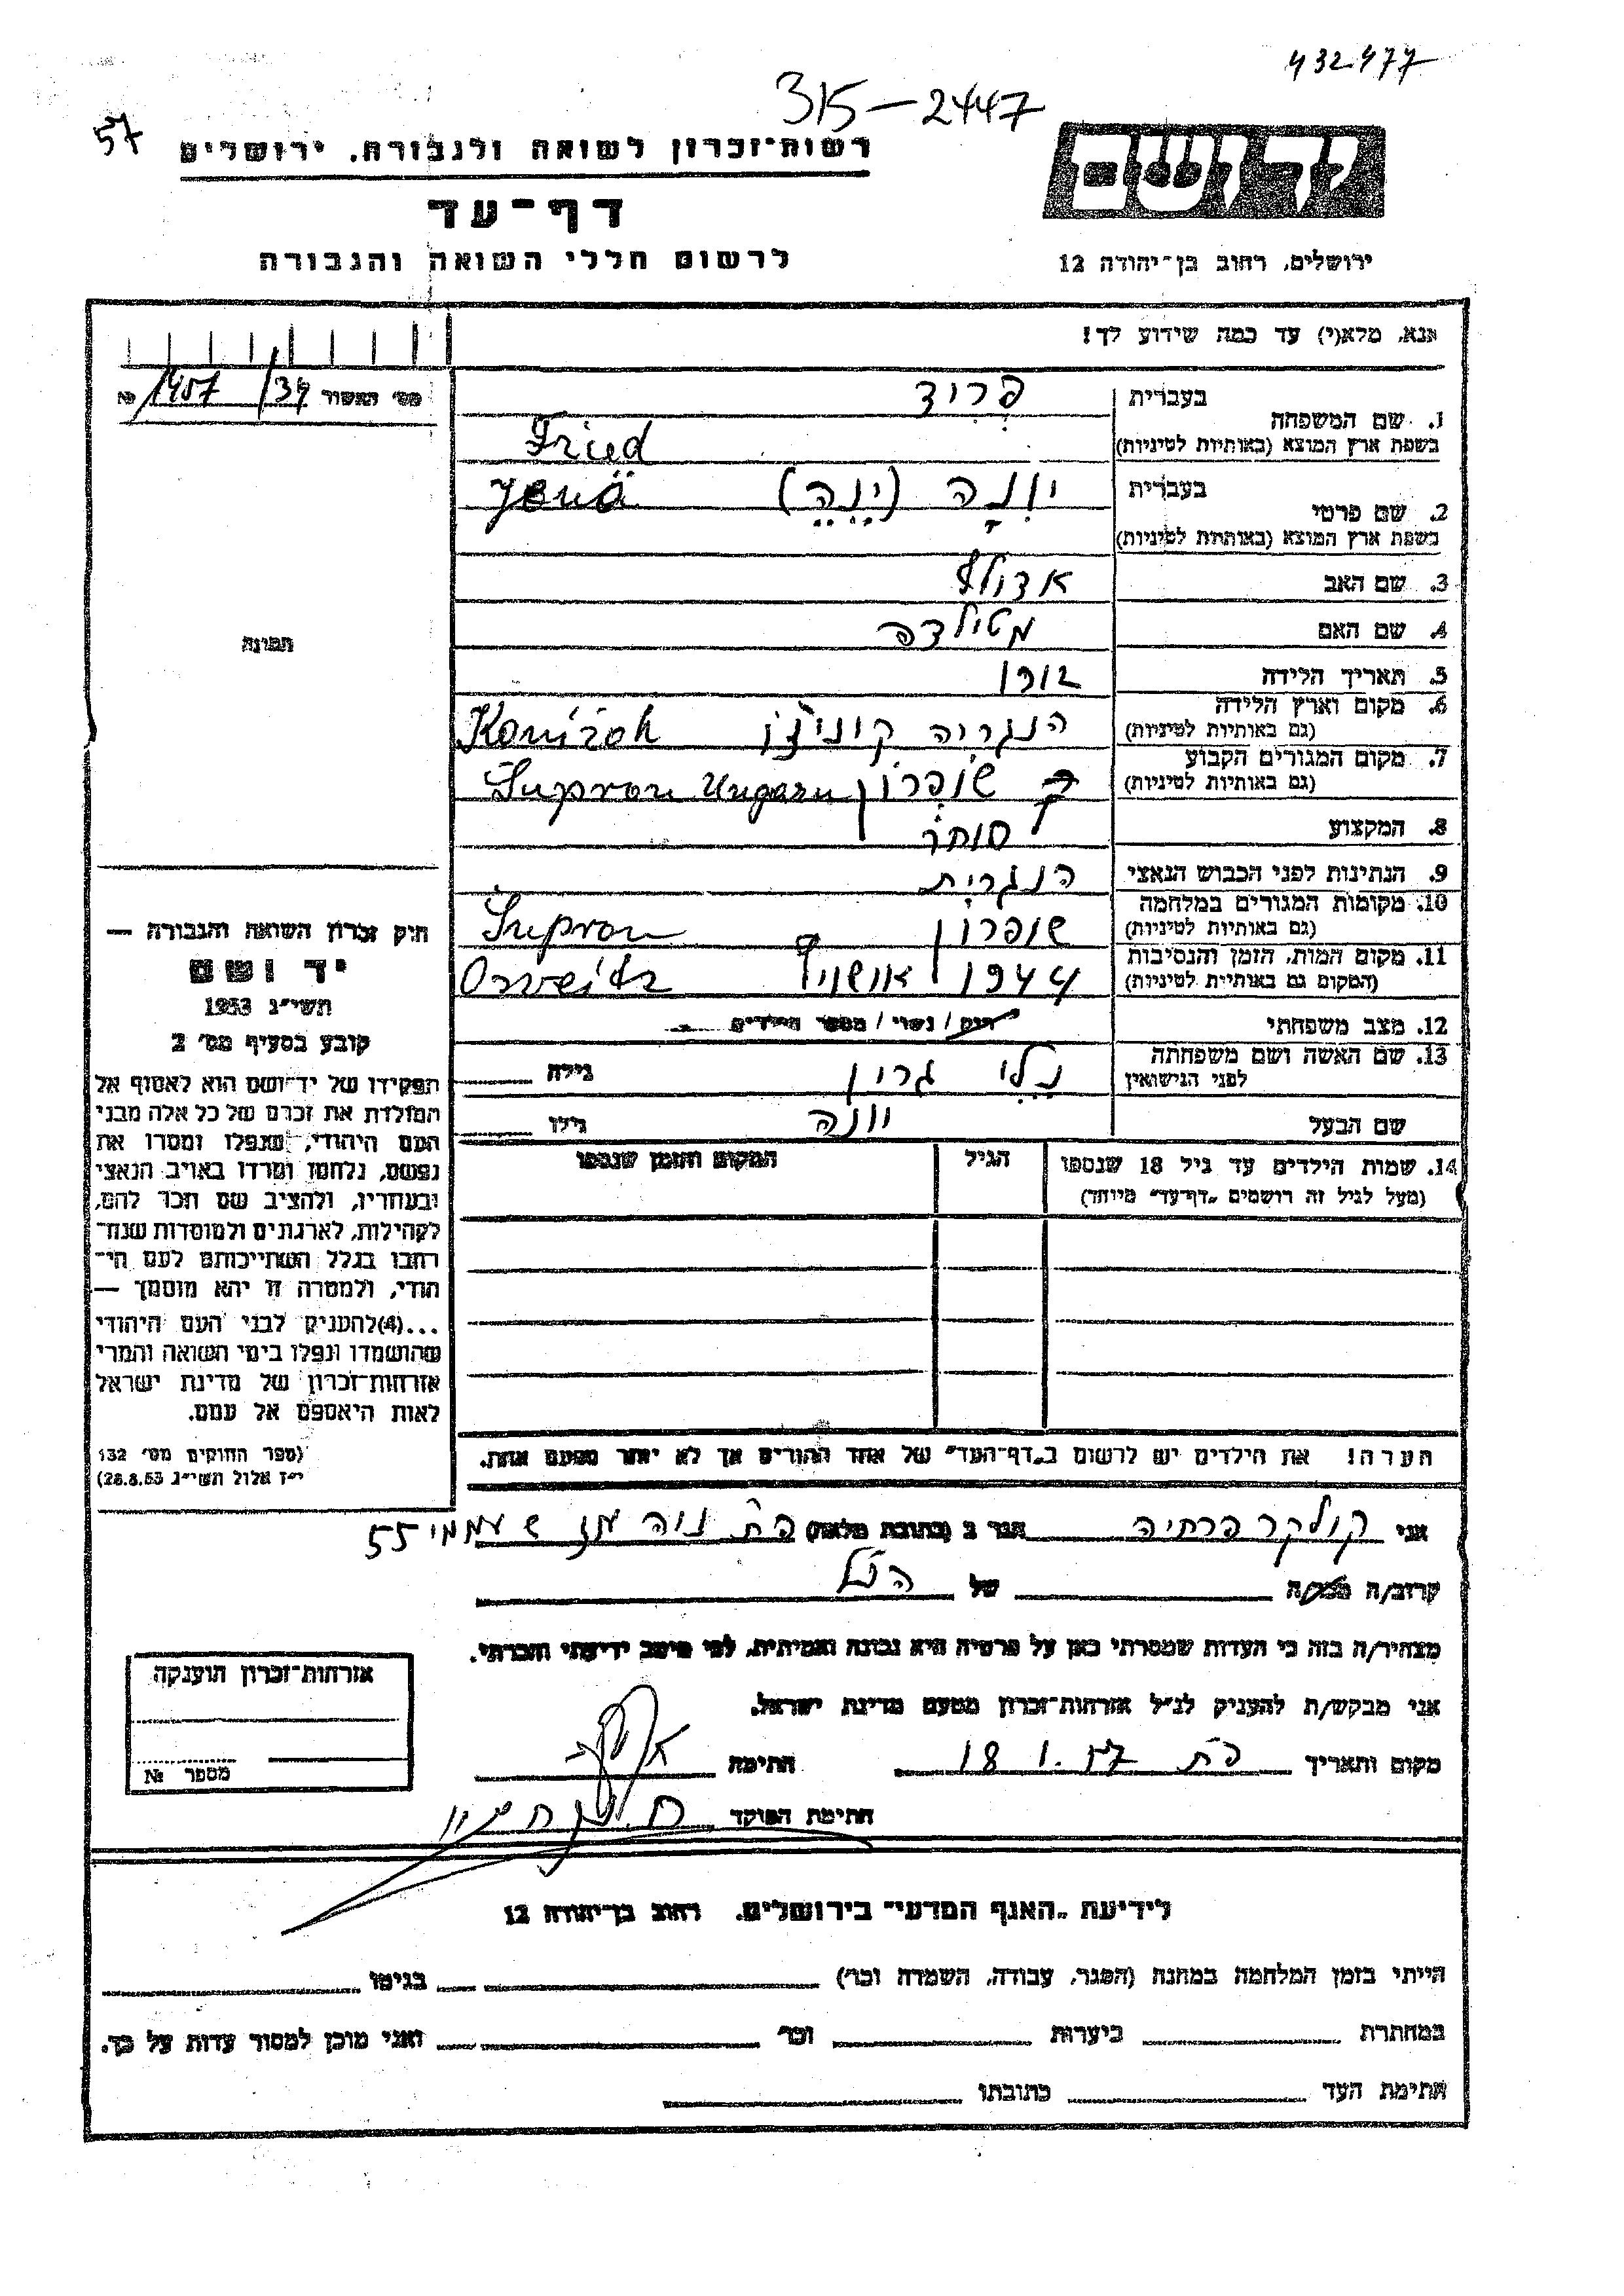 432477
315-2447
57
רשות-זכרון לשואה ולגבורה. ירושלים
יד ושם
דף-עד
לרשום חללי השואה והגבורה
ירושלים, רחוב בן-יהודה 12
אנא, מלא(י) עד כמה שידוע לך!
מס׳ האשור 1457/34 №
בעברית פריד
1. שם המשפחה
בשפת ארץ המוצא (באותיות לטיניות) Fried
בעברית יונה (ינה) Jenö
2. שם פרטי
בשפת ארץ המוצא (באותיות לטיניות)
3. שם האב אדולף
4. שם האם מטילדה
5. תאריך הלידה 1902
6. מקום וארץ הלידה הנגריה
(גם באותיות לטיניות)
7. מקום המגורים הקבוע שופרון Supron Ungarn
(גם באותיות לטיניות)
8. המקצוע סוחר
9. הנתינות לפני הכבוש הנאצי הנגרית
10. מקומות המגורים במלחמה שופרון Supron
(גם באותיות לטיניות)
11. מקום המות, הזמן והנסיבות 1944
(המקום גם באותיות לטיניות)
12. מצב משפחתי רוק / נשוי / מספר הילדים
13. שם האשה ושם משפחתה נלי גרין גילה
לפני הנישואין
שם הבעל יונה גילו
14. שמות הילדים עד גיל 18 שנספו הגיל המקום והזמן שנספו
(מעל לגיל זה רושמים „דף-עד" מיוחד)
הערה! את הילדים יש לרשום ב„דף-העד" של אחד ההורים אך לא יותר מפעם אחת.
תמונה
חוק זכרון השואה והגבורה —
יד ושם
תשי״ג 1953
קובע בסעיף מס׳ 2
תפקידו של יד-ושם הוא לאסוף אל
המולדת את זכרם של כל אלה מבני
העם היהודי, שנפלו ומסרו את
נפשם, נלחמו ומרדו באויב הנאצי
ובעוזריו, ולהציב שם וזכר להם,
לקהילות, לארגונים ולמוסדות שנח-
רבו בגלל השתייכותם לעם הי-
הודי, ולמטרה זו יהא מוסמך —
...(4)להעניק לבני העם היהודי
שהושמדו ונפלו בימי השואה והמרי
אזרחות-זכרון של מדינת ישראל
לאות היאספם אל עמם.
(ספר החוקים מס׳ 132
י״ז אלול תשי״ג 28.8.53)
אני הגר ב (כתובת מלאה) 55
קרוב/ה מכר/ה של הנ״ל
מצהיר/ה בזה כי העדות שמסרתי כאן על פרטיה היא נכונה ואמיתית, לפי מיטב ידיעתי והכרתי.
אני מבקש/ת להעניק לנ״ל אזרחות-זכרון מטעם מדינת ישראל.
מקום ותאריך פ״ת 18.1.57 חתימה
חתימת הפוקד
אזרחות-זכרון הוענקה
מספר №
לידיעת „האגף המדעי" בירושלים. רחוב בן-יהודה 12
הייתי בזמן המלחמה במחנה (הסגר, עבודה, השמדה וכו׳) בגיטו
במחתרת ביערות וכו׳ ואני מוכן למסור עדות על כך.
חתימת העד כתובתו